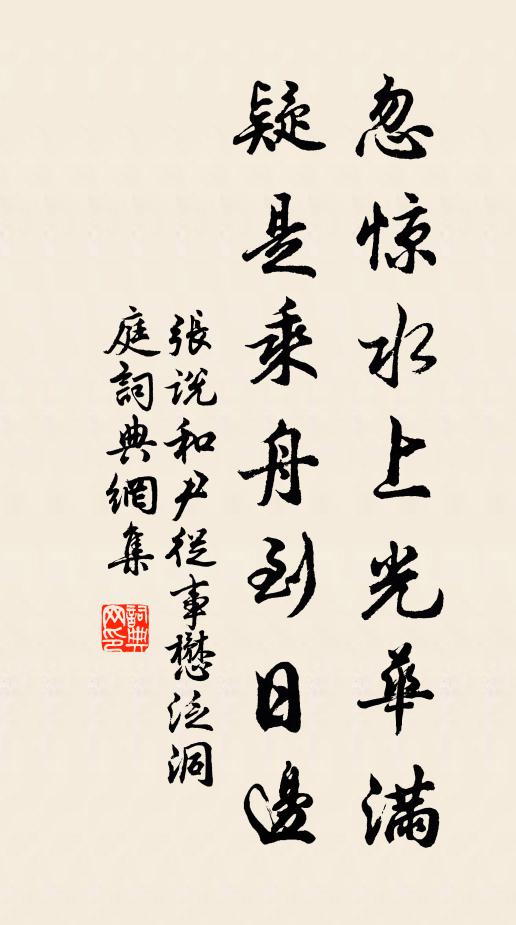 忽惊水上光华满
疑是乘舟到日邊
張説和尹從事懋泛洞
庭詞典網集
詞典网印